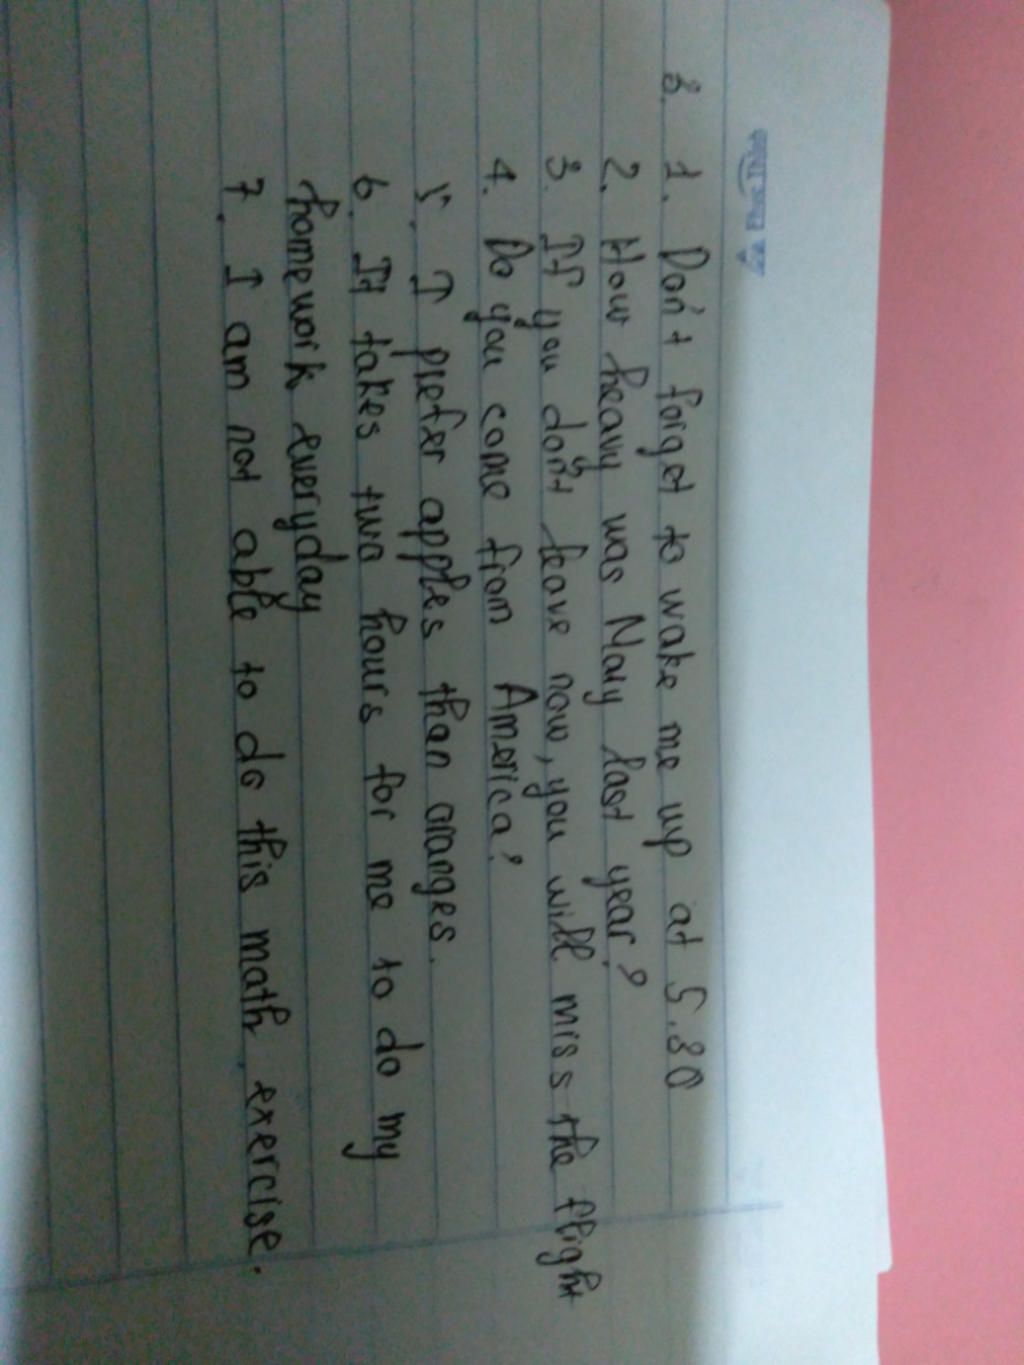 3. 1. Don't forget to wake me up at 5.30
2. How heavy was Mary last year?
3. If you don't leave now, you will miss the flight
4. Do you come from America?
5. I prefer apples than oranges.
6. It takes two hours for me to do my
homework everyday
7. I am not able to do this math exercise.